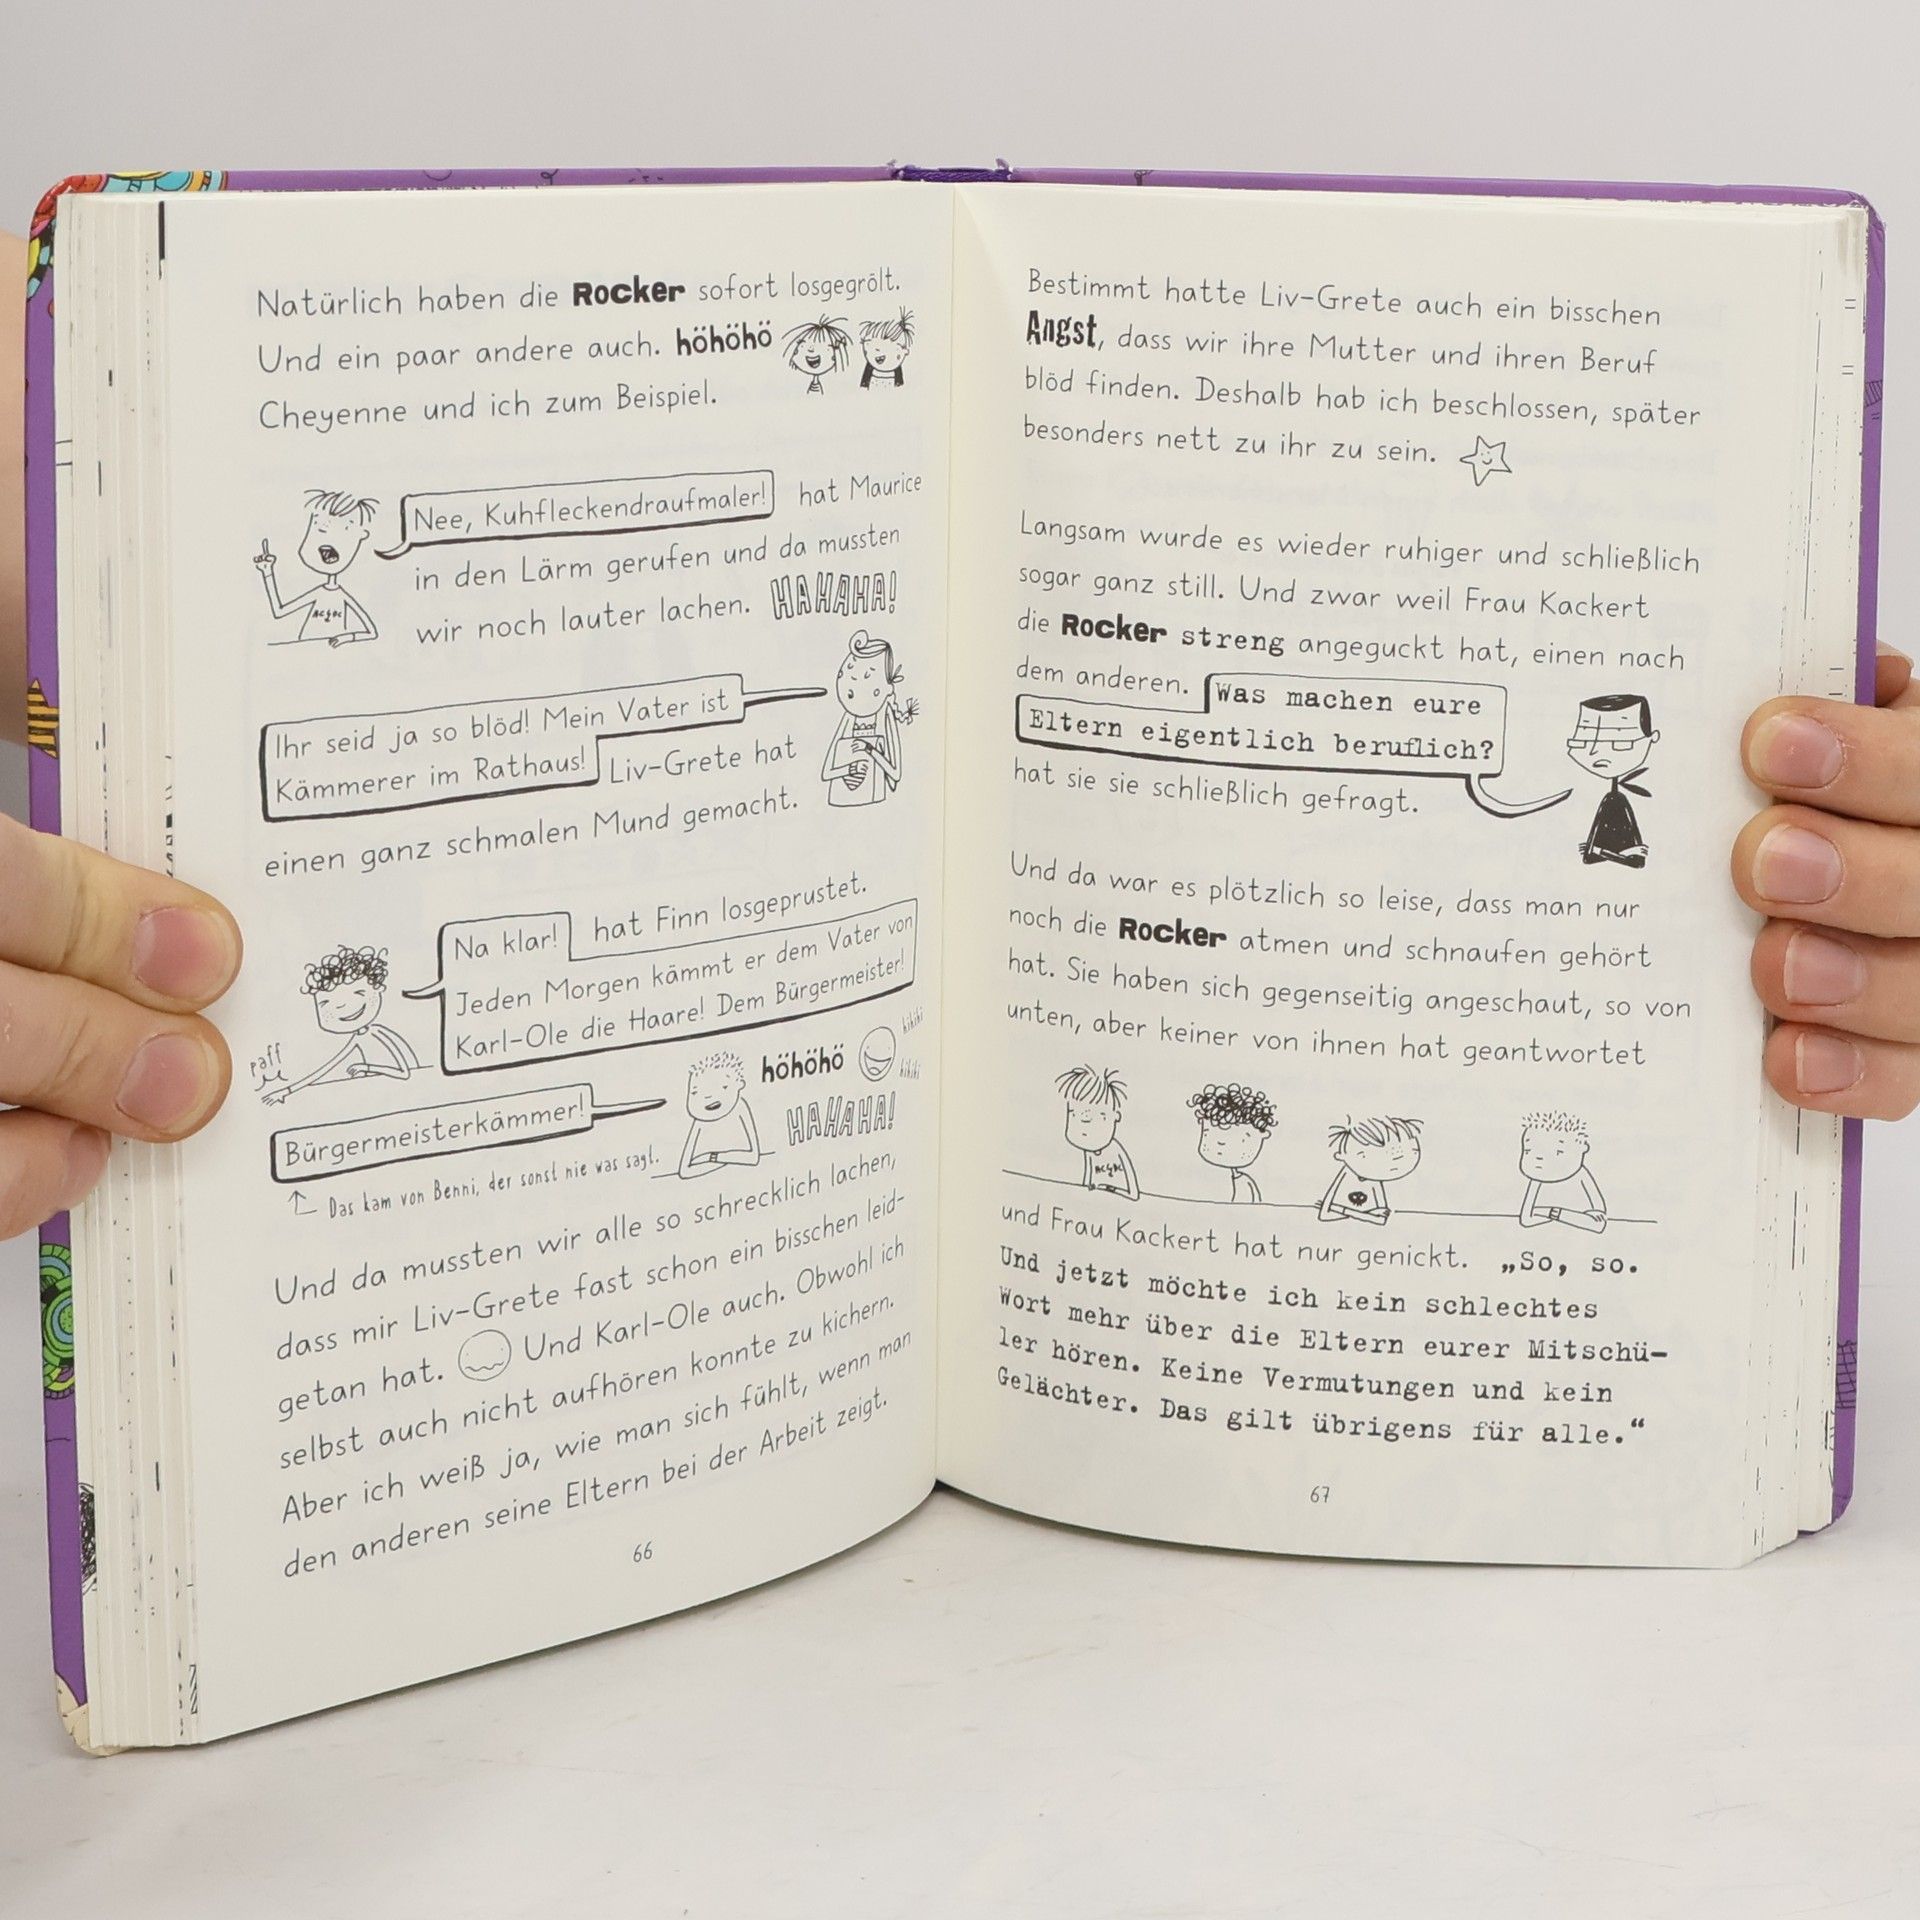 Natürlich haben die Rocker sofort losgegrölt.
Und ein paar andere auch. höhöhö
Cheyenne und ich zum Beispiel.
Nee, Kuhfleckendraufmaler! hat Maurice
in den Lärm gerufen und da mussten
wir noch lauter lachen. HAHAHA!
ACϟDC
Ihr seid ja so blöd! Mein Vater ist
Kämmerer im Rathaus! Liv-Grete hat
einen ganz schmalen Mund gemacht.
Na klar! hat Finn losgeprustet.
Jeden Morgen kämmt er dem Vater von
Karl-Ole die Haare! Dem Bürgermeister!
paff
höhöhö hihihi
hihihi
HAHAHA!
Bürgermeisterkämmer!
Das kam von Benni, der sonst nie was sagt.
Und da mussten wir alle so schrecklich lachen,
dass mir Liv-Grete fast schon ein bisschen leid-
getan hat. Und Karl-Ole auch. Obwohl ich
selbst auch nicht aufhören konnte zu kichern.
Aber ich weiß ja, wie man sich fühlt, wenn man
den anderen seine Eltern bei der Arbeit zeigt.
66
Bestimmt hatte Liv-Grete auch ein bisschen
Angst, dass wir ihre Mutter und ihren Beruf
blöd finden. Deshalb hab ich beschlossen, später
besonders nett zu ihr zu sein.
Langsam wurde es wieder ruhiger und schließlich
sogar ganz still. Und zwar weil Frau Kackert
die Rocker streng angeguckt hat, einen nach
dem anderen. Was machen eure
Eltern eigentlich beruflich?
hat sie sie schließlich gefragt.
Und da war es plötzlich so leise, dass man nur
noch die Rocker atmen und schnaufen gehört
hat. Sie haben sich gegenseitig angeschaut, so von
unten, aber keiner von ihnen hat geantwortet
ACϟDC
und Frau Kackert hat nur genickt. „So, so.
Und jetzt möchte ich kein schlechtes
Wort mehr über die Eltern eurer Mitschü-
ler hören. Keine Vermutungen und kein
Gelächter. Das gilt übrigens für alle.“
67